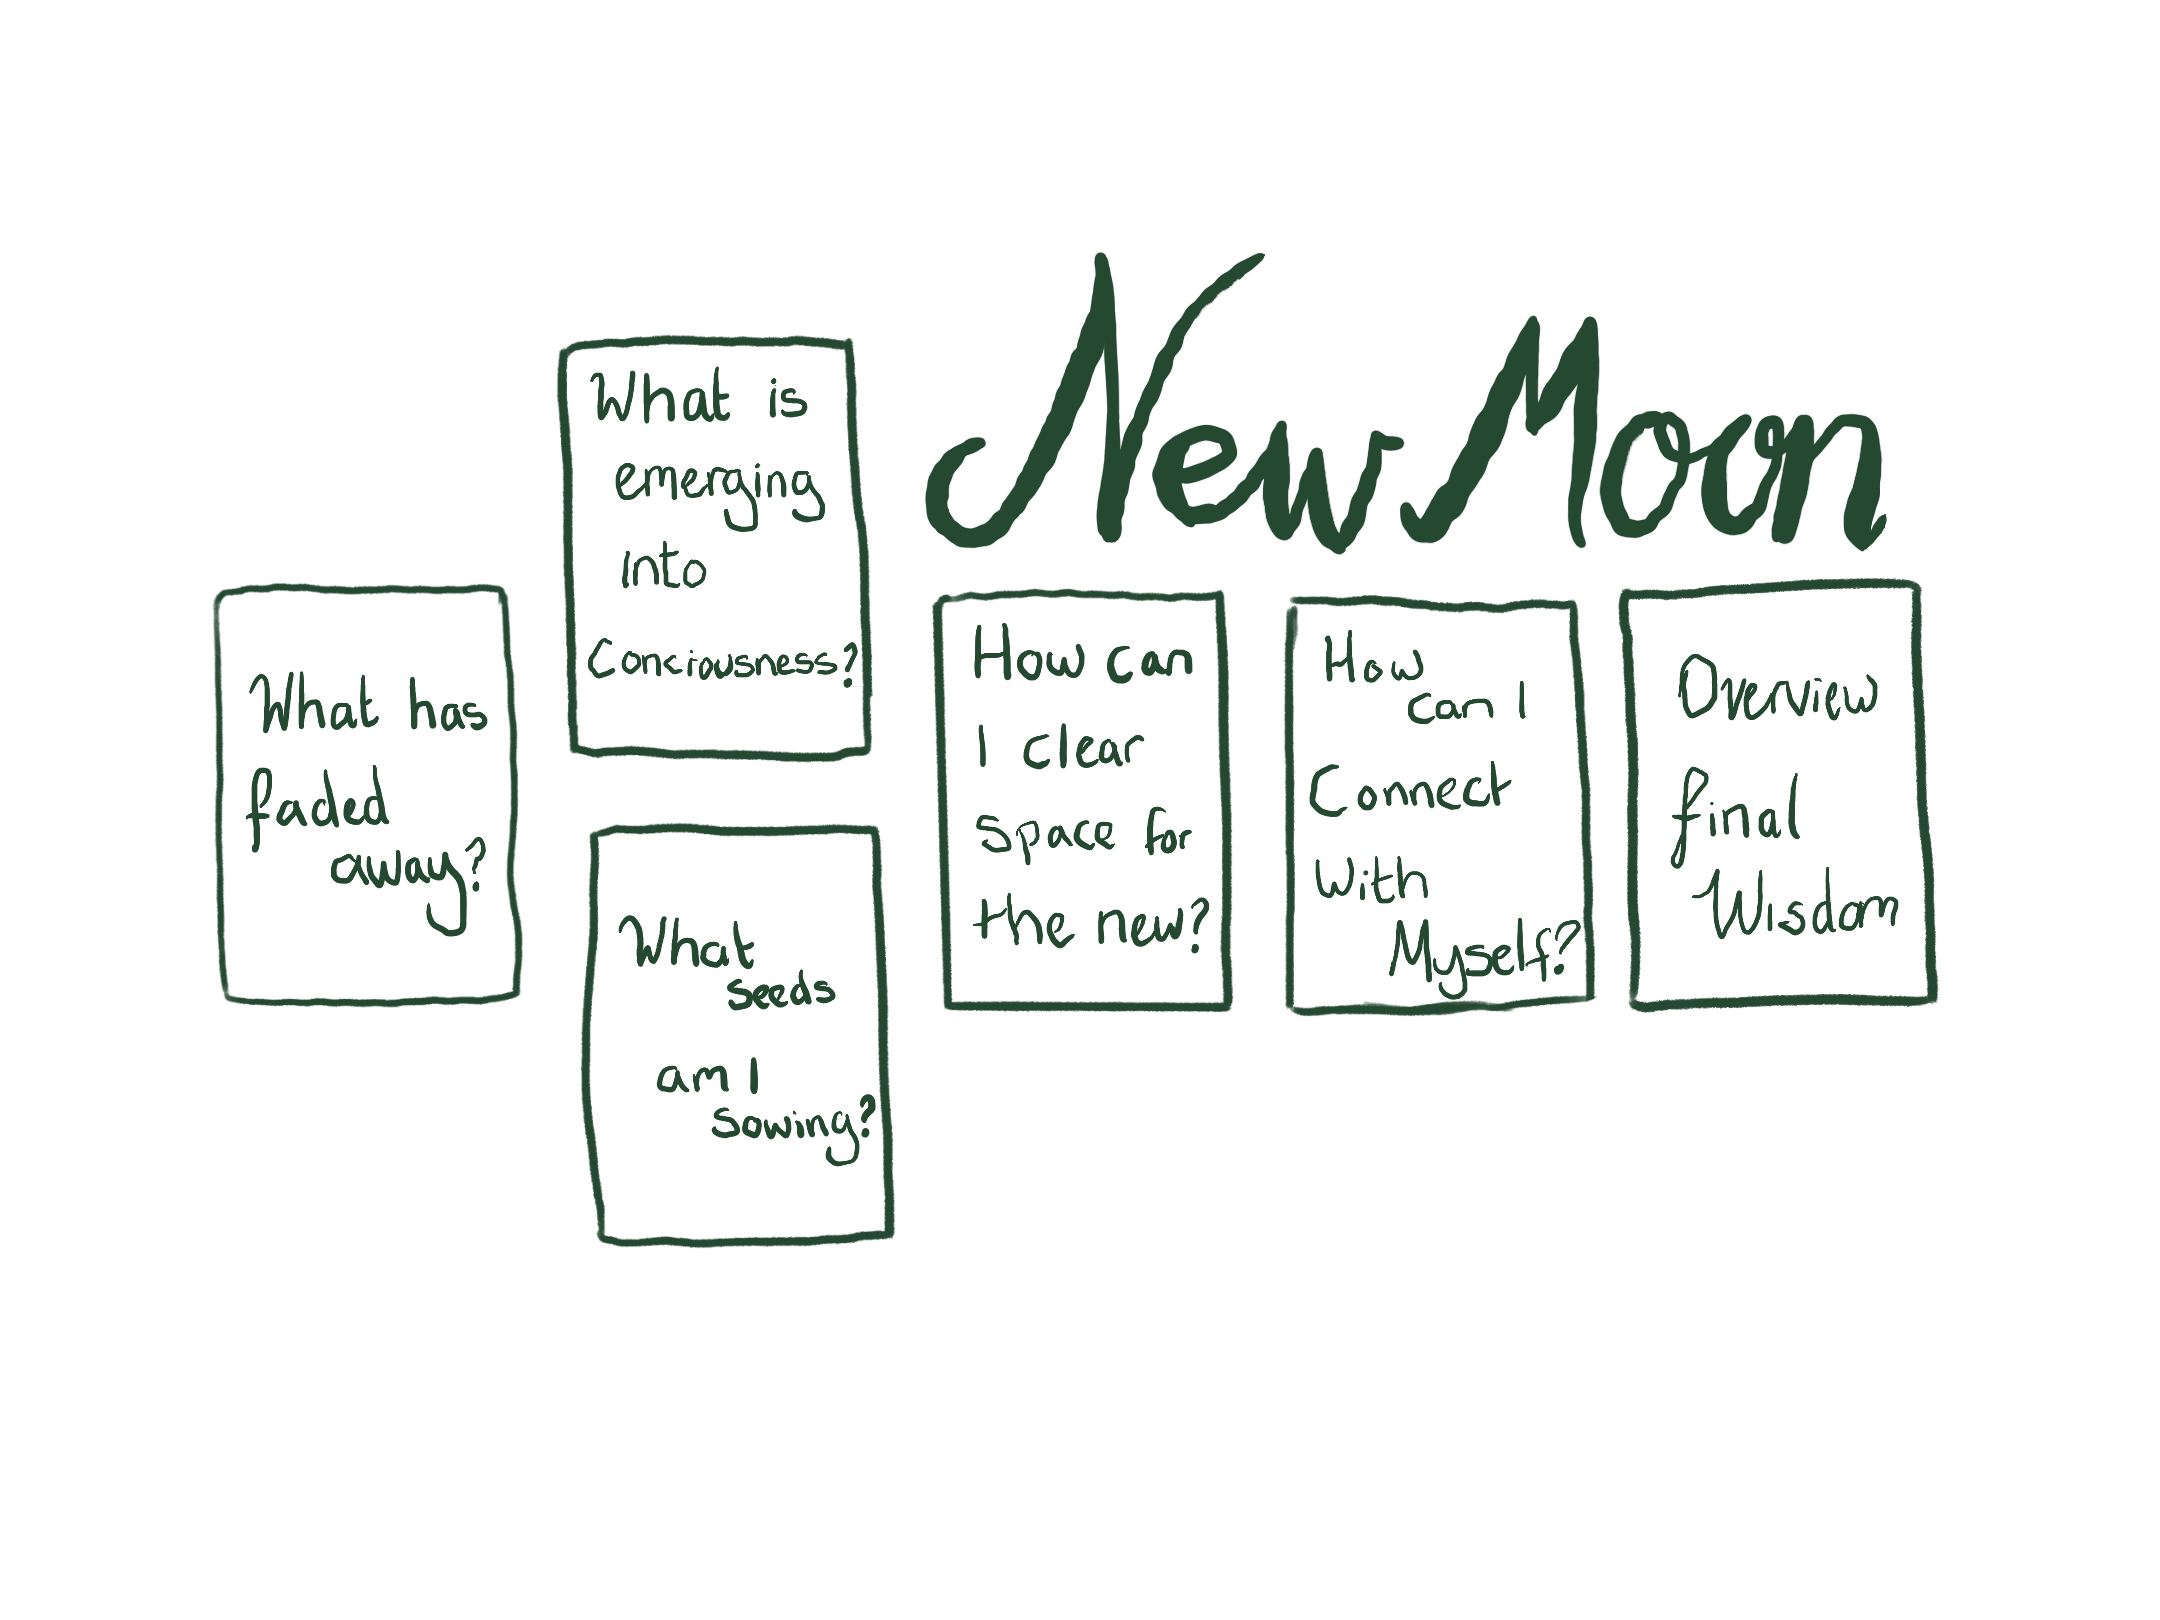 New Moon
What has
faded
away?
What is
emerging
into
Conciousness?
What
seeds
am I
sowing?
How can
I clear
space for
the new?
How
can I
Connect
With
Myself?
Overview
final
Wisdom